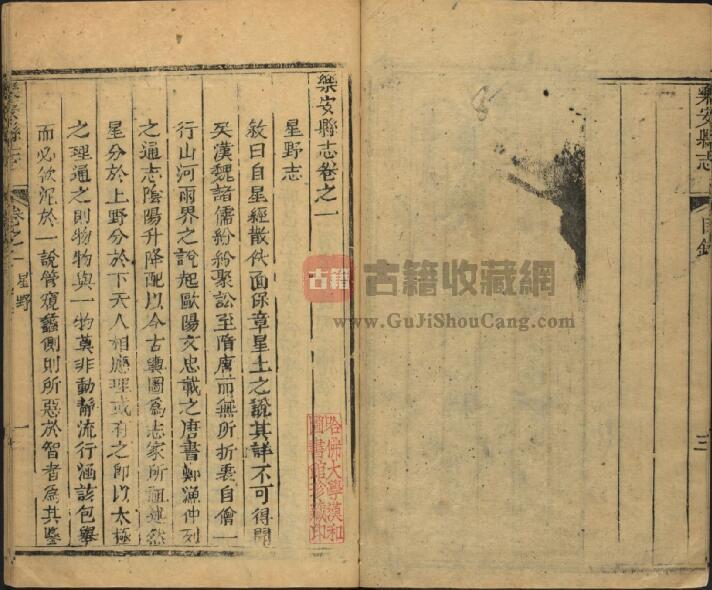 樂安縣志
目錄
三
樂安縣志卷之一
星野志
敘曰自星經散佚而保章星土之說其詳不可得聞
矣漢魏諸儒紛紛聚訟至隋唐而無所折衷自僧一
行山河兩界之說起歐陽文忠載之唐書鄭漁仲列
之通志陰陽升降配以今古輿圖爲志家所祖述然
星分於上野分於下天人相應理或有之即以太極
之理通之則物物與一物莫非動靜流行涵該包舉
而必佽泥於一說管窺蠡測則所惡於智者爲其鑿
樂安縣志
卷之一
星野
一
哈佛大學漢和
圖書館珍藏印
古籍
古籍收藏網
www.GuJiShouCang.com